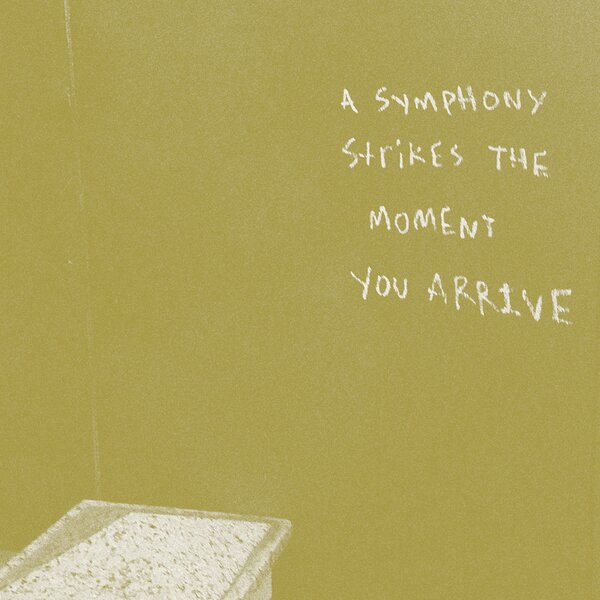 A SYMPHONY
StriKES THE
MOMENT
YOU ARRIVE